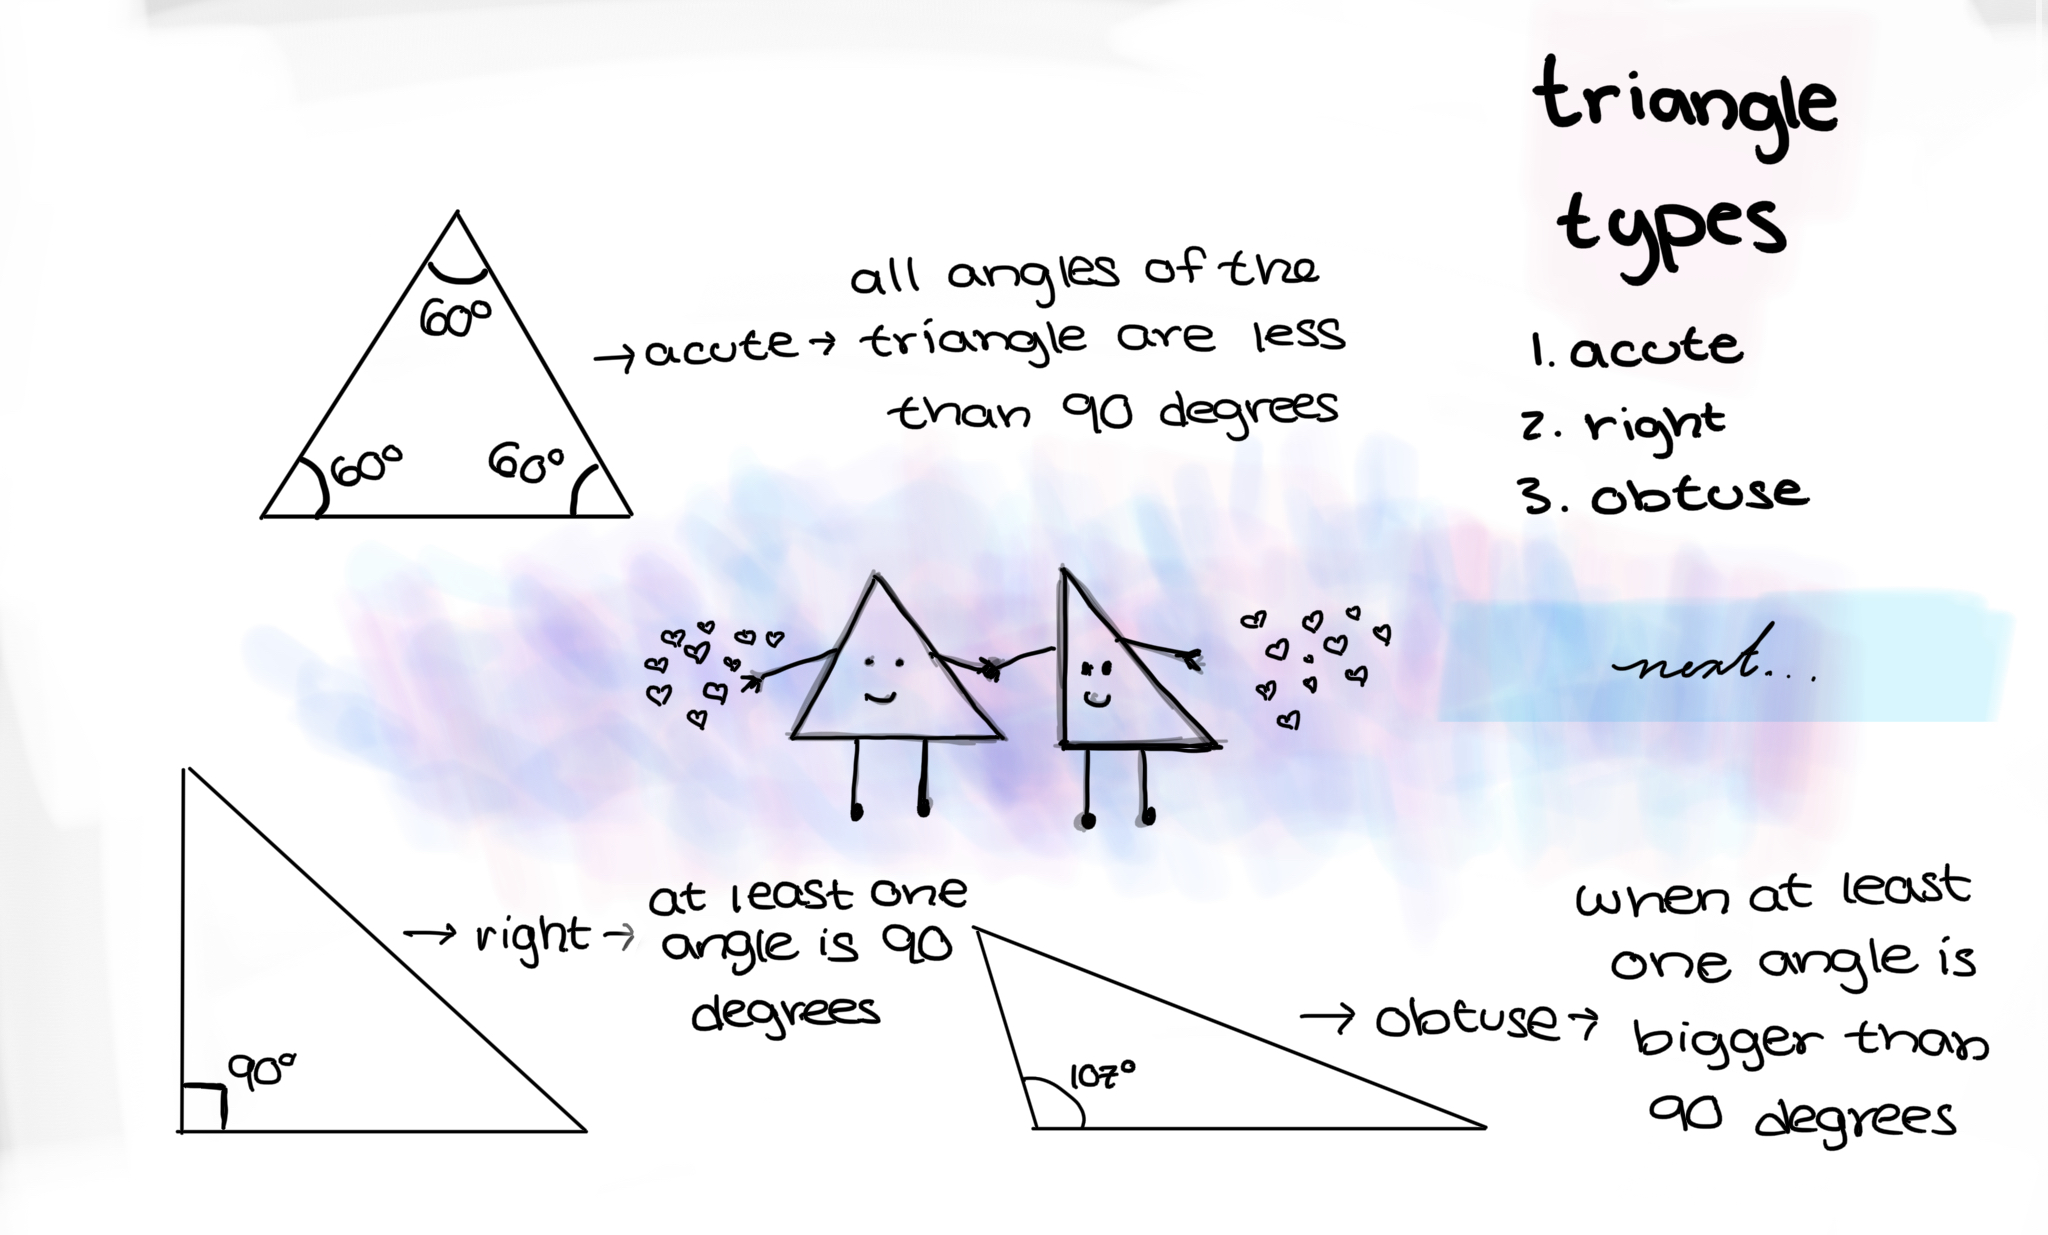 triangle
types
1. acute
2. right
3. obtuse
60°
60°
60°
→ acute →
all angles of the
triangle are less
than 90 degrees
next...
90°
→ right →
at least one
angle is 90
degrees
107°
→ obtuse →
when at least
one angle is
bigger than
90 degrees